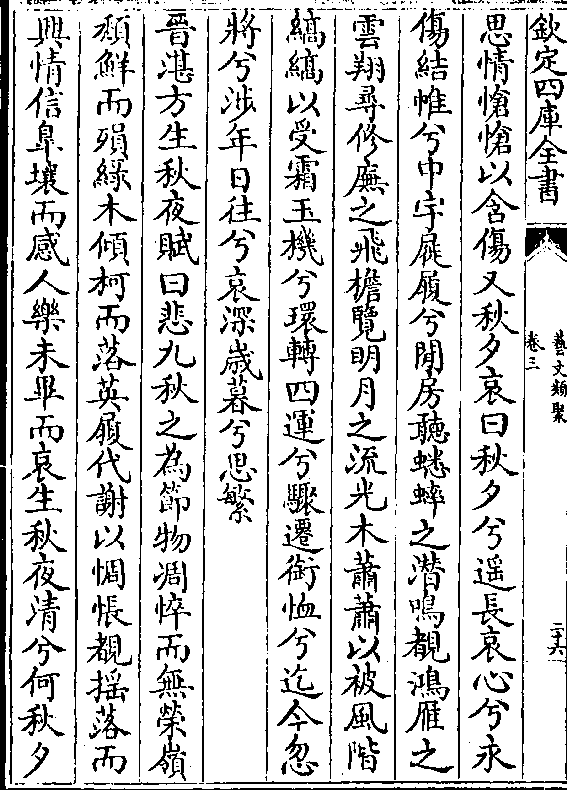 欽定四庫全書
藝文類聚
卷三
二十六
思情愴愴以含傷又秋夕哀曰秋夕兮遥長哀心兮永
傷結帷兮中宇屣履兮閒房聽蟋蟀之潜鳴覩鴻雁之
雲翔尋修廡之飛檐覽明月之流光木蕭蕭以被風階
縞縞以受霜玉機兮環轉四運兮驟遷銜恤兮迄今忽
將兮涉年日往兮哀深歲暮兮思繁
晉湛方生秋夜賦曰悲九秋之為節物凋悴而無榮嶺
頽鮮而殞綠木傾柯而落英履代謝以惆悵覩揺落而
興情信臯壤而感人樂未畢而哀生秋夜清兮何秋夕